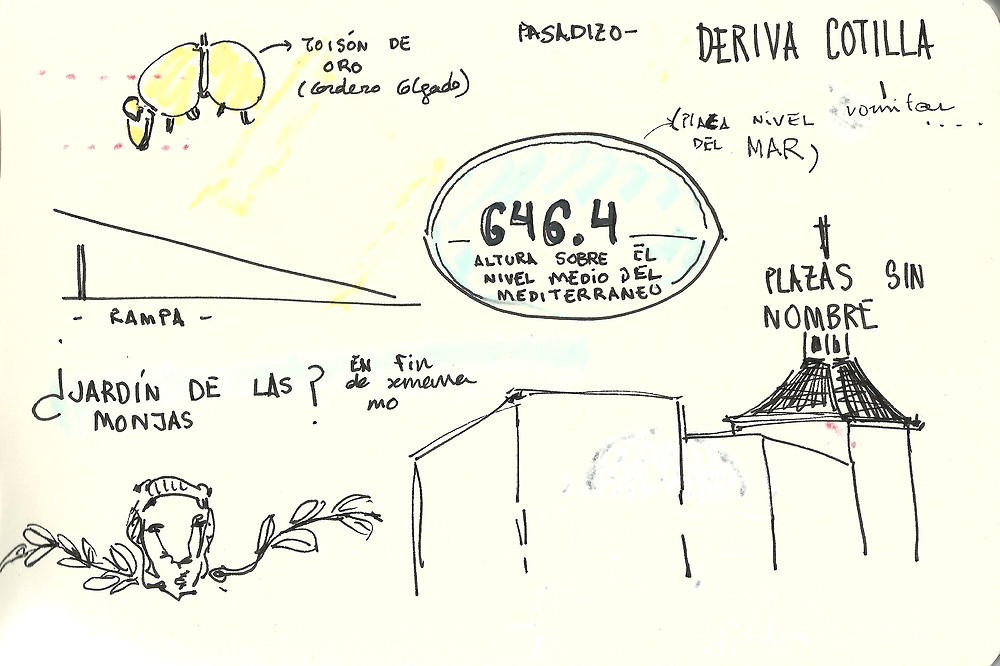 TOISÓN DE
ORO
(Cordero Colgado)
PASADIZO-
DERIVA COTILLA
vomitar
....
(PLAZA NIVEL
DEL MAR)
646.4
ALTURA SOBRE EL
NIVEL MEDIO DEL
MEDITERRANEO
PLAZAS SIN
NOMBRE
- RAMPA -
¿JARDÍN DE LAS ?
MONJAS
EN fin
de semana
no